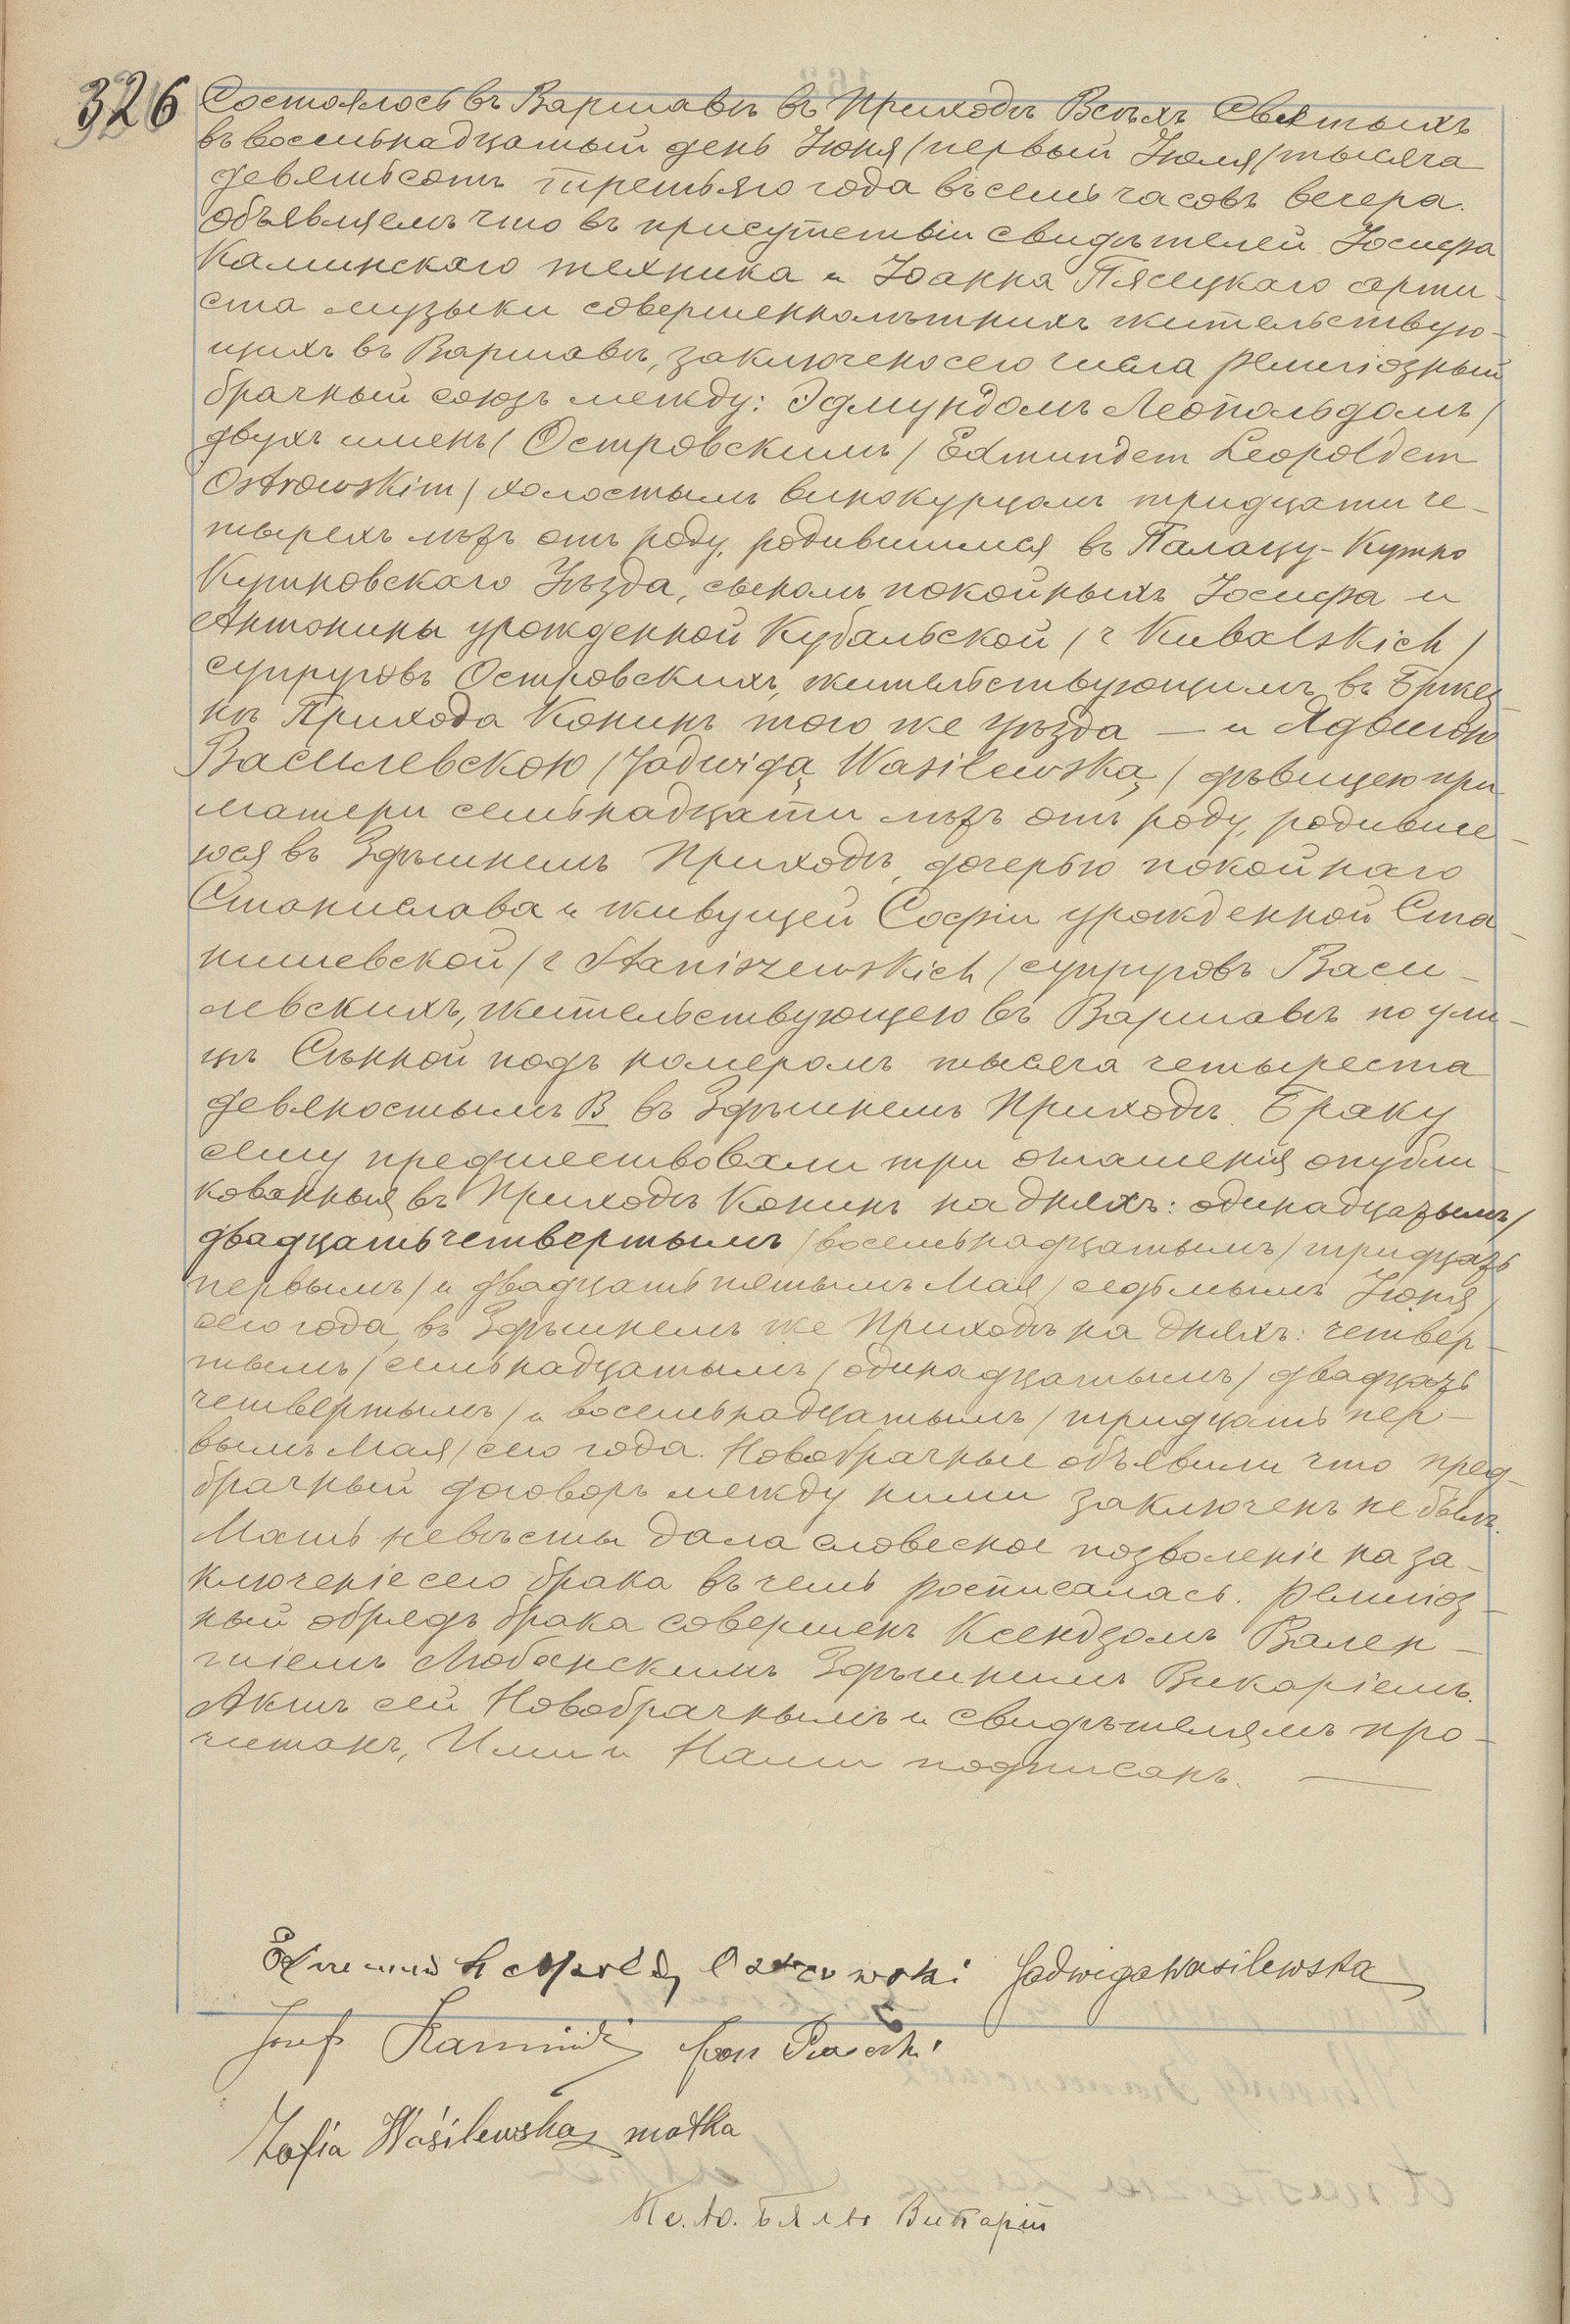 326
Состоялось въ Варшавѣ въ Приходѣ Всѣхъ Святыхъ
въ восемьнадцатый день Іюня / первый Іюля / тысяча
девятьсотъ третьяго года въ семь часовъ вечера.
Объявляемъ что въ присутствіи свидѣтелей Іосифа
Каминскаго техника и Іоанна Пясецкаго арти-
ста музыки совершеннолѣтнихъ жительствую-
щихъ въ Варшавѣ, заключено сего числа религіозный
брачный союзъ между: Эдмундомъ Леопольдомъ /
двухъ именъ / Островскимъ / Edmundem Leopoldem
Ostrowskim / холостымъ винокурцомъ тридцати че-
тырехъ лѣтъ отъ роду, родившимся въ Палацу-Кутно
Кутновскаго Уѣзда, сыномъ покойныхъ Іосифа и
Антонины урожденной Кубальской / z Kubalskich /
супруговъ Островскихъ, жительствующимъ въ Бржез-
нѣ Прихода Конинъ того же уѣзда — и Ядвигою
Василевскою / Jadwigą Wasilewską / дѣвицею при
матери семьнадцати лѣтъ отъ роду, родивше-
юся въ Здѣшнемъ Приходѣ, дочерью покойнаго
Станислава и живущей Софіи урожденной Ста-
нишевской / z Staniszewskich / супруговъ Васи-
левскихъ, жительствующею въ Варшавѣ по ули-
цѣ Сѣнной подъ номеромъ тысяча четыреста
девяностымъ В въ Здѣшнемъ Приходѣ. Браку
сему предшествовали три оглашенія опубли-
кованныя въ Приходѣ Конинъ на дняхъ: одинадцатымъ /
двадцать четвертымъ / восемьнадцатымъ / тридцать
первымъ / и двадцать пятымъ Мая / седьмымъ Іюня /
сего года, въ Здѣшнемъ же Приходѣ на дняхъ: четвер-
тымъ / семьнадцатымъ / одинадцатымъ / двадцать
четвертымъ / и восемьнадцатымъ / тридцать пер-
вымъ Мая / сего года. Новобрачные объявили что пред-
брачный договоръ между ними заключенъ не былъ.
Мать невѣсты дала словесное позволеніе на за-
ключеніе сего брака въ чемъ росписалась. Религіоз-
ный обрядъ брака совершенъ Ксендзомъ Вален-
тіемъ Любанскимъ Здѣшнимъ Викаріемъ.
Актъ сей Новобрачнымъ и свидѣтелямъ про-
читанъ, Ими и Нами подписанъ. —
Edmund Leopold Ostrowski Jadwiga Wasilewska
Józef Kamiński Jan Piasecki
Zofia Wasilewska matka
Кс. Ю. Бялы Викарій